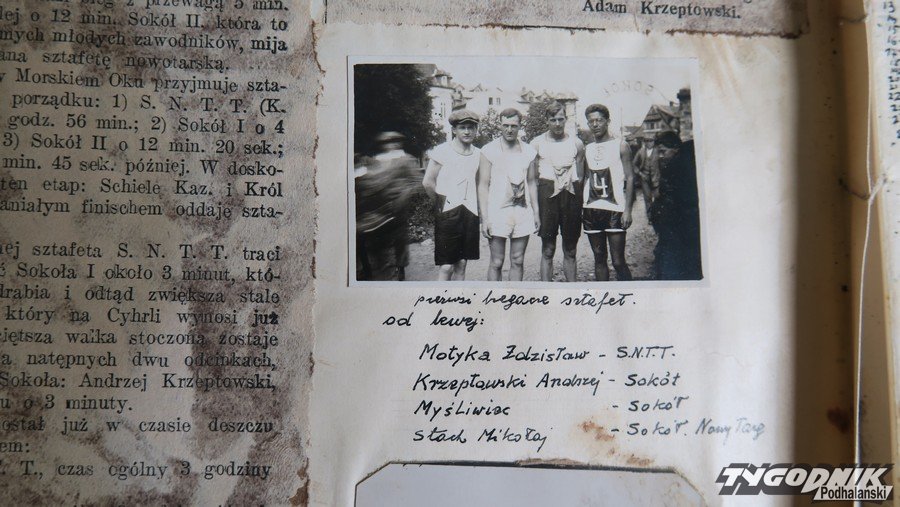 bieg z przewagą 5 min.
lej o 12 min. Sokół II. która to
mych młodych zawodników, mija
ana sztafetę nowotarską.
w Morskiem Oku przyjmuje szta-
porządku: 1) S. N. T. T. (K.
godz. 56 min.; 2) Sokół I o 4
3) Sokół II o 12 min. 20 sek.;
min. 45 sek. później. W dosko-
ten etap: Schiele Kaz. i Król
aniałym finischem oddaje szta-
ej sztafeta S. N. T. T. traci
Sokoła I około 3 minut, któ-
drabia i odtąd zwiększa stale
który na Cyhrli wynosi już
ciętsza walka stoczona zostaje
a natępnych dwu odcinkach,
Sokoła: Andrzej Krzeptowski,
u o 3 minuty.
ostał już w czasie deszczu
em:
T., czas ogólny 3 godziny
Adam Krzeptowski.
SOKÓŁ
4
pierwsi biegacze sztafet.
od lewej:
Motyka Zdzisław - S.N.T.T.
Krzeptowski Andrzej - Sokół
Myśliwiec - Sokół
Stach Mikołaj - Sokół. Nowy Targ
TYGODNIK
Podhalański